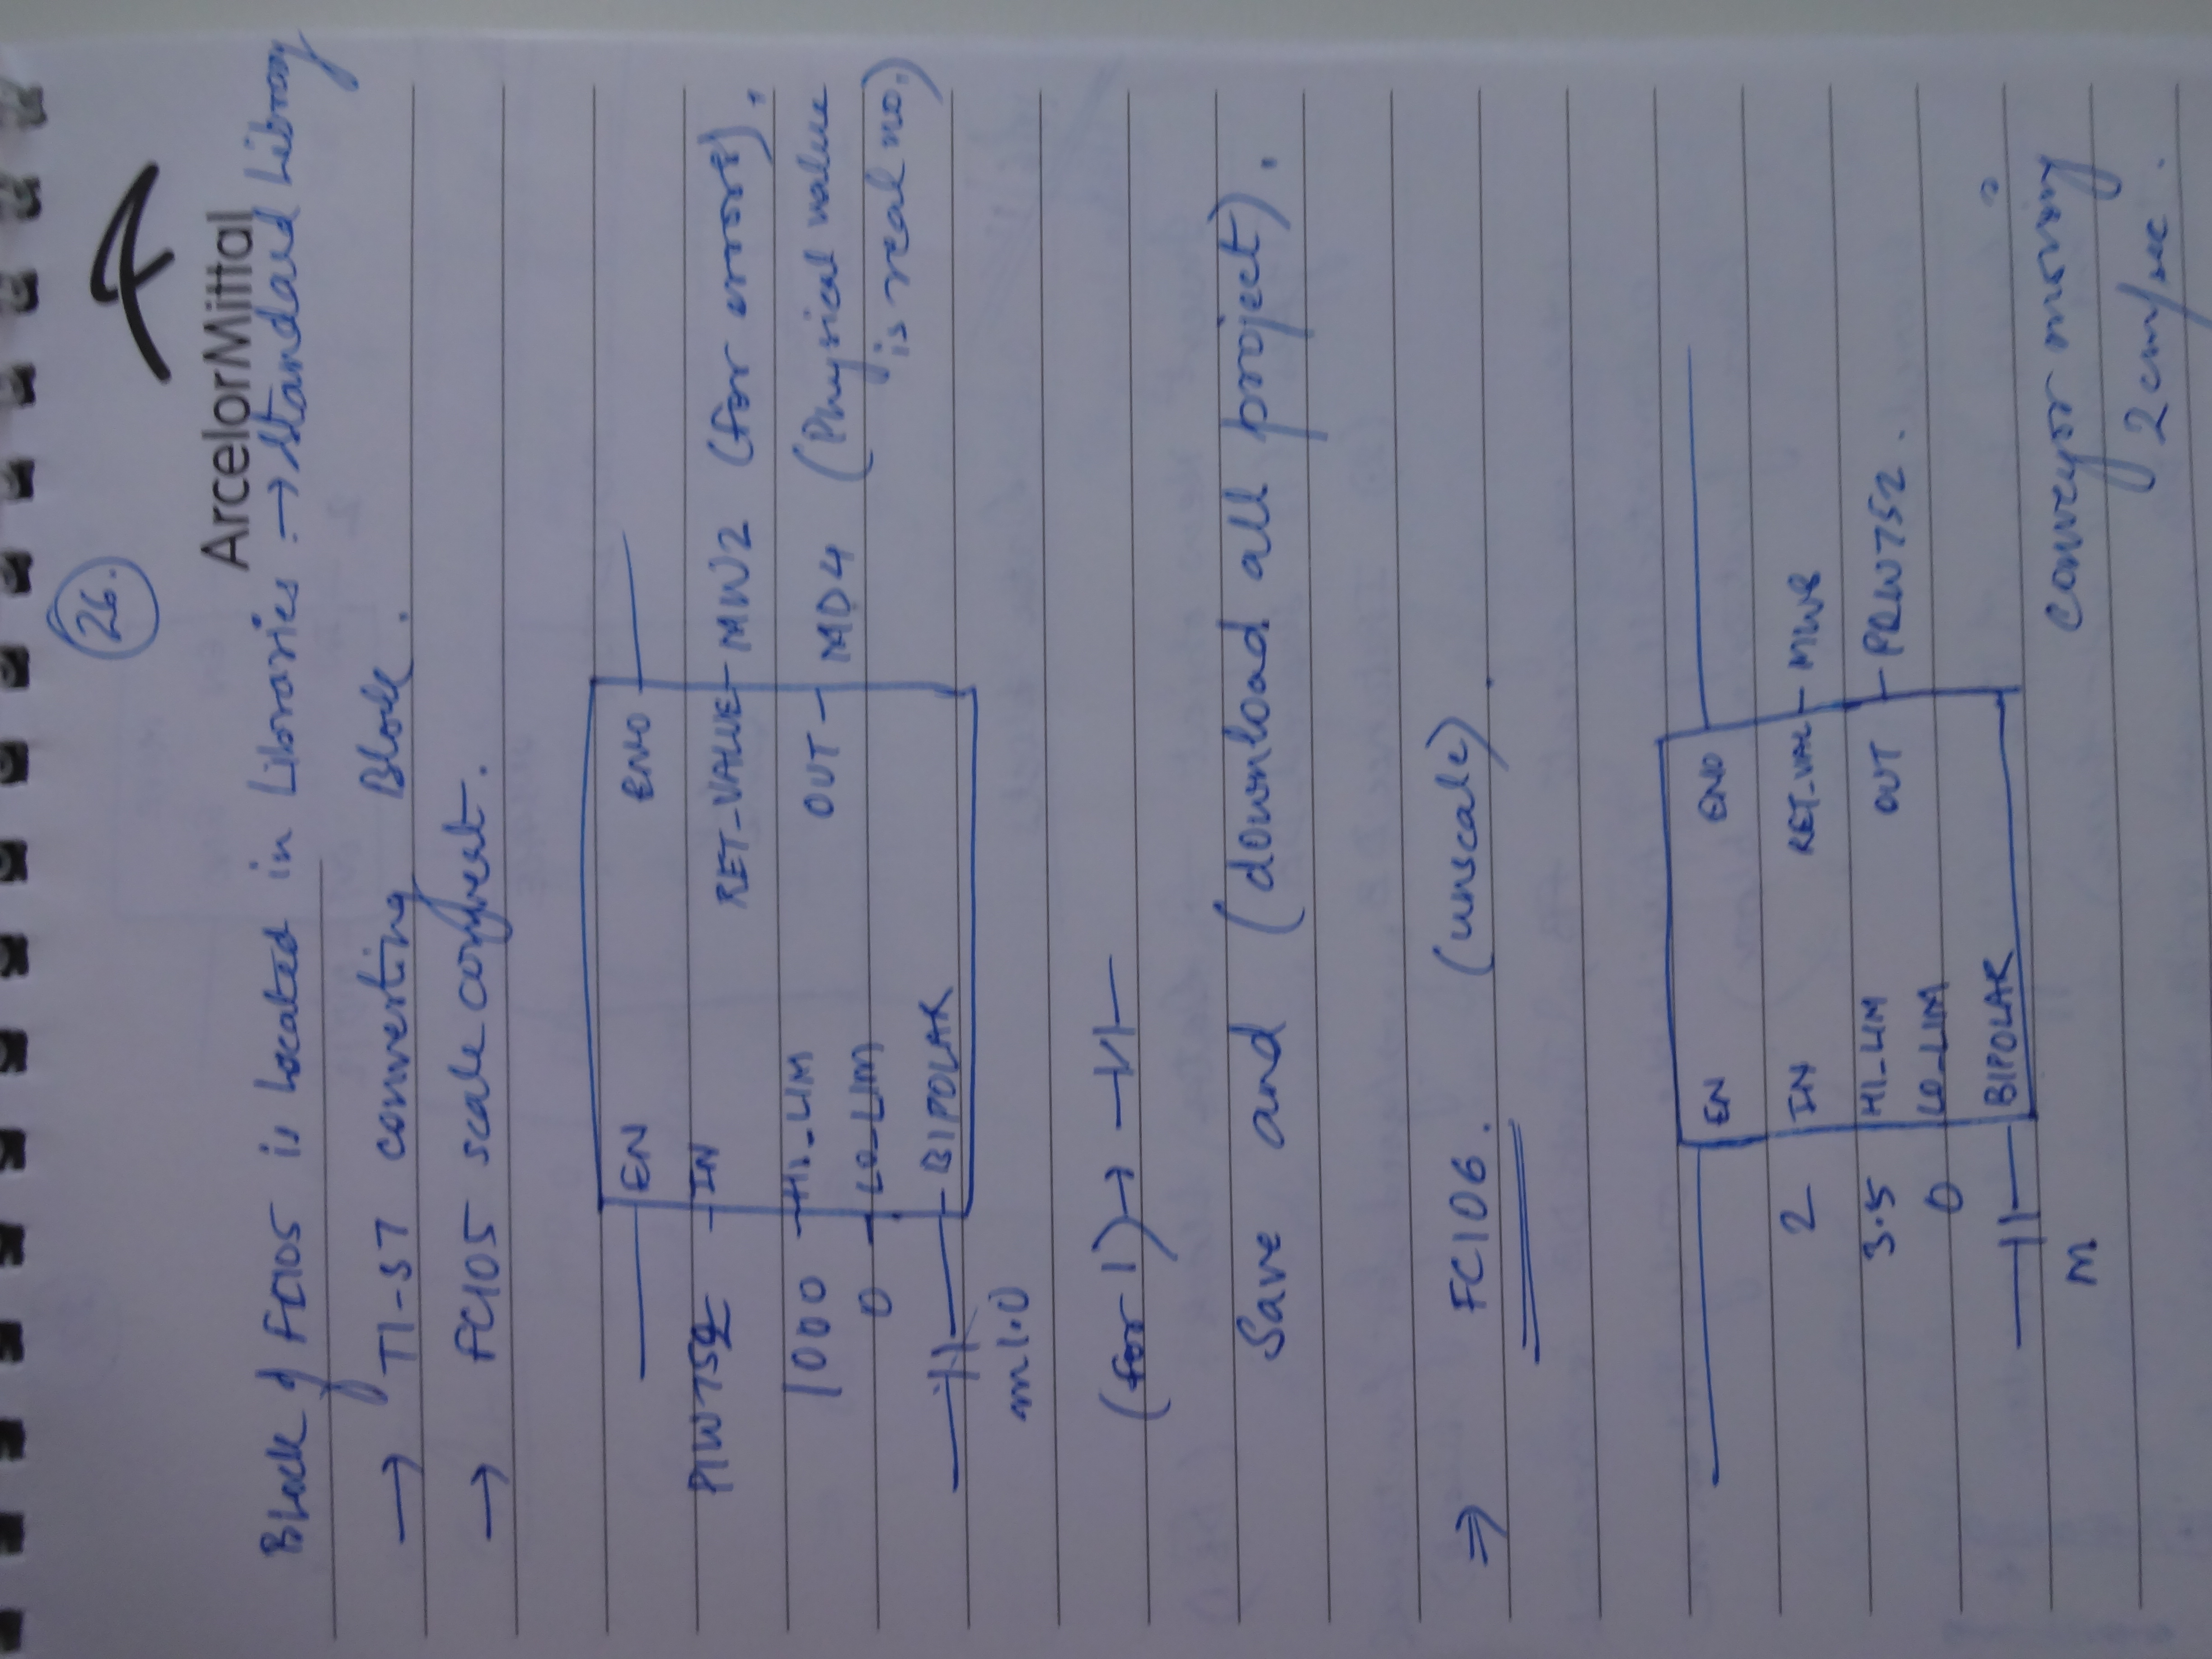 26.
ArcelorMittal
Block of FC105 is located in Libraries → Standard Library
→ TI-S7 converting Block.
→ FC105 scale convert.
EN ENO
PIW752 IN RET-VALUE MW2 (for errors).
1000 HI-LIM OUT MD4 (Physical value
0 LO-LIM is real no.)
BIPOLAR
m1.0
(for 1) →
Save and (download all project).
⇒ FC106. (unscale)
EN ENO
2 IN RET-VAL MW8
3.5 HI-LIM OUT PQW752.
0 LO-LIM
BIPOLAR
M
conveyor moving
2 cm/sec.